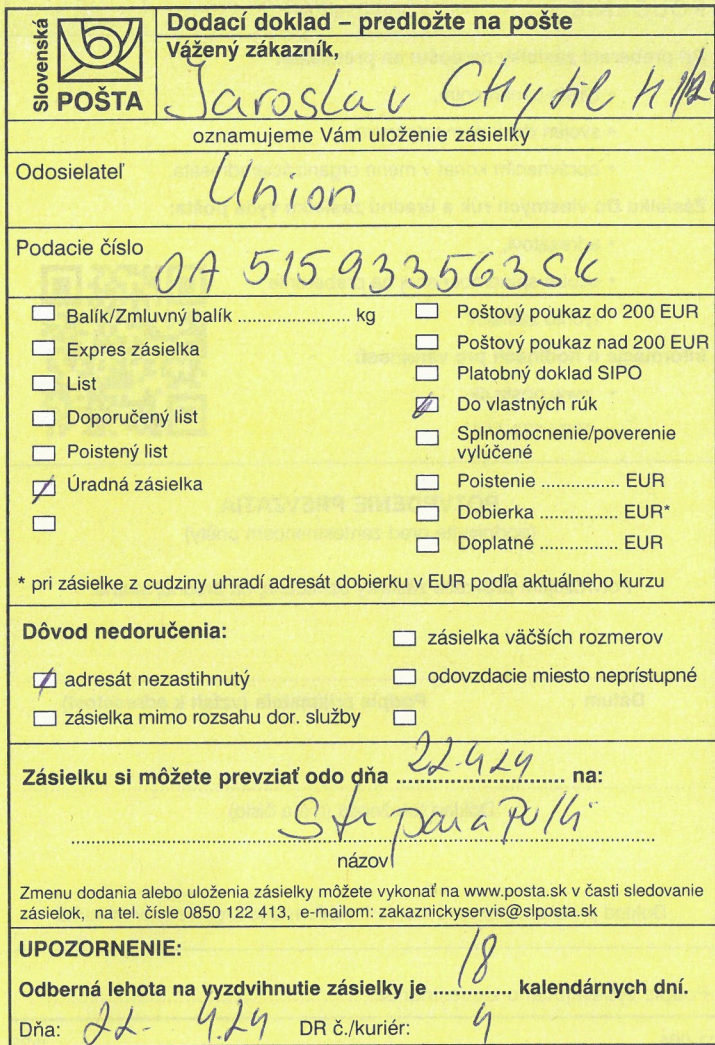 Slovenská
POŠTA
Dodací doklad – predložte na pošte
Vážený zákazník,
Jaroslav Chytil
oznamujeme Vám uloženie zásielky
Odosielateľ
Union
Podacie číslo
OA 515933563SK
Balík/Zmluvný balík ...................... kg
Expres zásielka
List
Doporučený list
Poistený list
Úradná zásielka
Poštový poukaz do 200 EUR
Poštový poukaz nad 200 EUR
Platobný doklad SIPO
Do vlastných rúk
Splnomocnenie/poverenie
vylúčené
Poistenie ............... EUR
Dobierka ................ EUR*
Doplatné ................ EUR
* pri zásielke z cudziny uhradí adresát dobierku v EUR podľa aktuálneho kurzu
Dôvod nedoručenia:
zásielka väčších rozmerov
adresát nezastihnutý
odovzdacie miesto neprístupné
zásielka mimo rozsahu dor. služby
Zásielku si môžete prevziať odo dňa 22.4.24 na:
názov
Zmenu dodania alebo uloženia zásielky môžete vykonať na www.posta.sk v časti sledovanie
zásielok, na tel. čísle 0850 122 413, e-mailom: zakaznickyservis@slposta.sk
UPOZORNENIE:
Odberná lehota na vyzdvihnutie zásielky je 18 kalendárnych dní.
Dňa: 22. 4.24 DR č./kuriér: 4